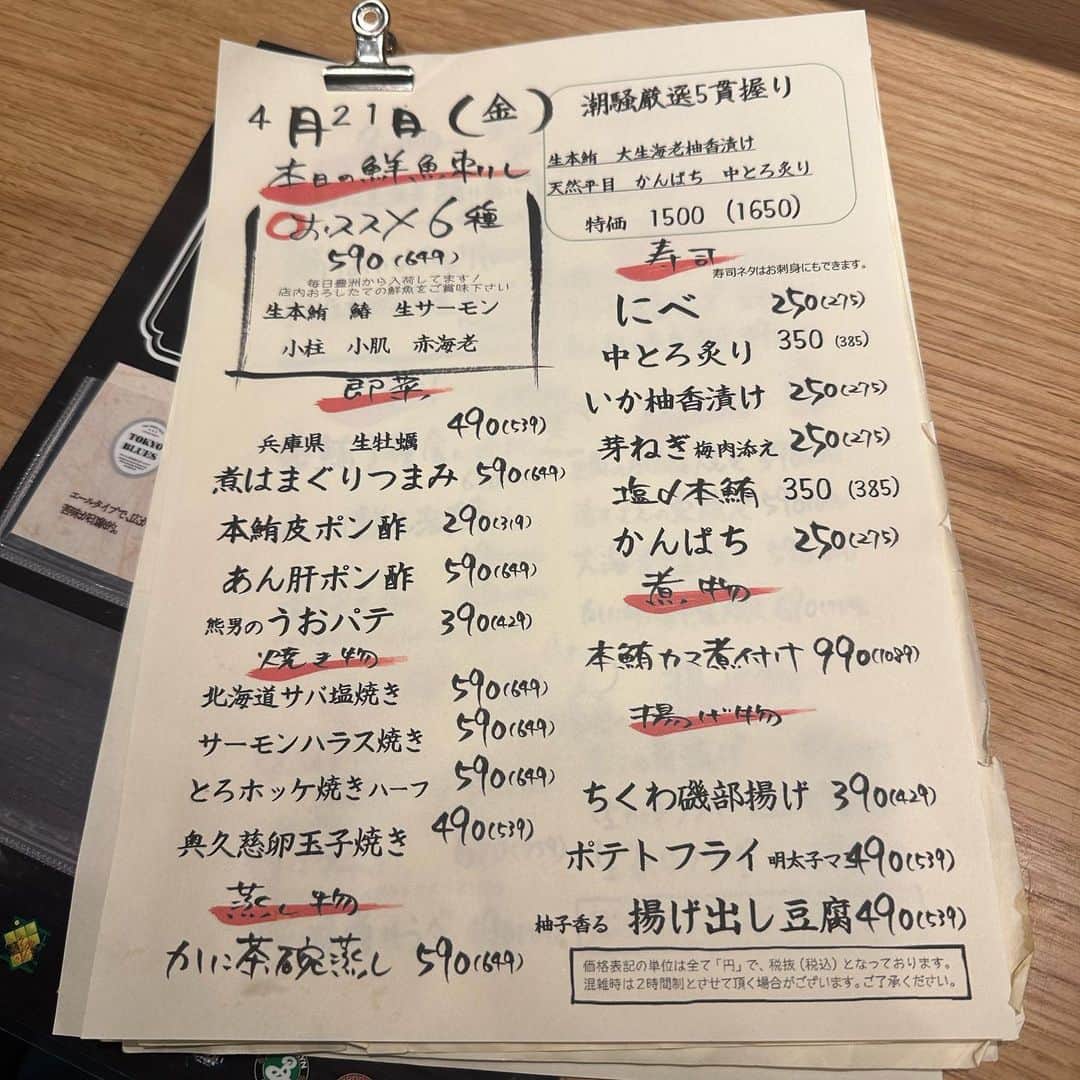 4月21日(金)
本日の鮮魚刺し
おススメ6種
590(649)
毎日豊洲から入荷してます!
店内おろしたての鮮魚をご賞味下さい
生本鮪 鰆 生サーモン
小柱 小肌 赤海老
即菜
兵庫県 生牡蠣 490(539)
煮はまぐりつまみ 590(649)
本鮪皮ポン酢 290(319)
あん肝ポン酢 590(649)
熊男のうおパテ 390(429)
焼き物
北海道サバ塩焼き 590(649)
サーモンハラス焼き 590(649)
とろホッケ焼きハーフ 590(649)
奥久慈卵玉子焼き 490(539)
蒸し物
かに茶碗蒸し 590(649)
潮騒厳選5貫握り
生本鮪 大生海老柚香漬け
天然平目 かんぱち 中とろ炙り
特価 1500 (1650)
寿司
寿司ネタはお刺身にもできます。
にべ 250(275)
中とろ炙り 350(385)
いか柚香漬け 250(275)
芽ねぎ梅肉添え 250(275)
塩〆本鮪 350(385)
かんぱち 250(275)
煮物
本鮪カマ煮付け 990(1089)
揚げ物
ちくわ磯部揚げ 390(429)
ポテトフライ 明太子マ 490(539)
柚子香る 揚げ出し豆腐 490(539)
価格表記の単位は全て「円」で、税抜(税込)となっております。
混雑時は2時間制とさせて頂く場合がございます。ご了承ください。
TOKYO
BLUES
エールタイプで、